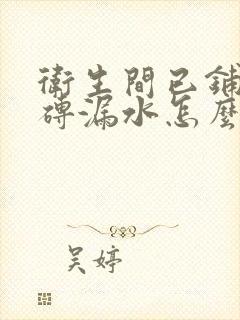 衛生間已鋪
磚漏水怎麼
吳婷